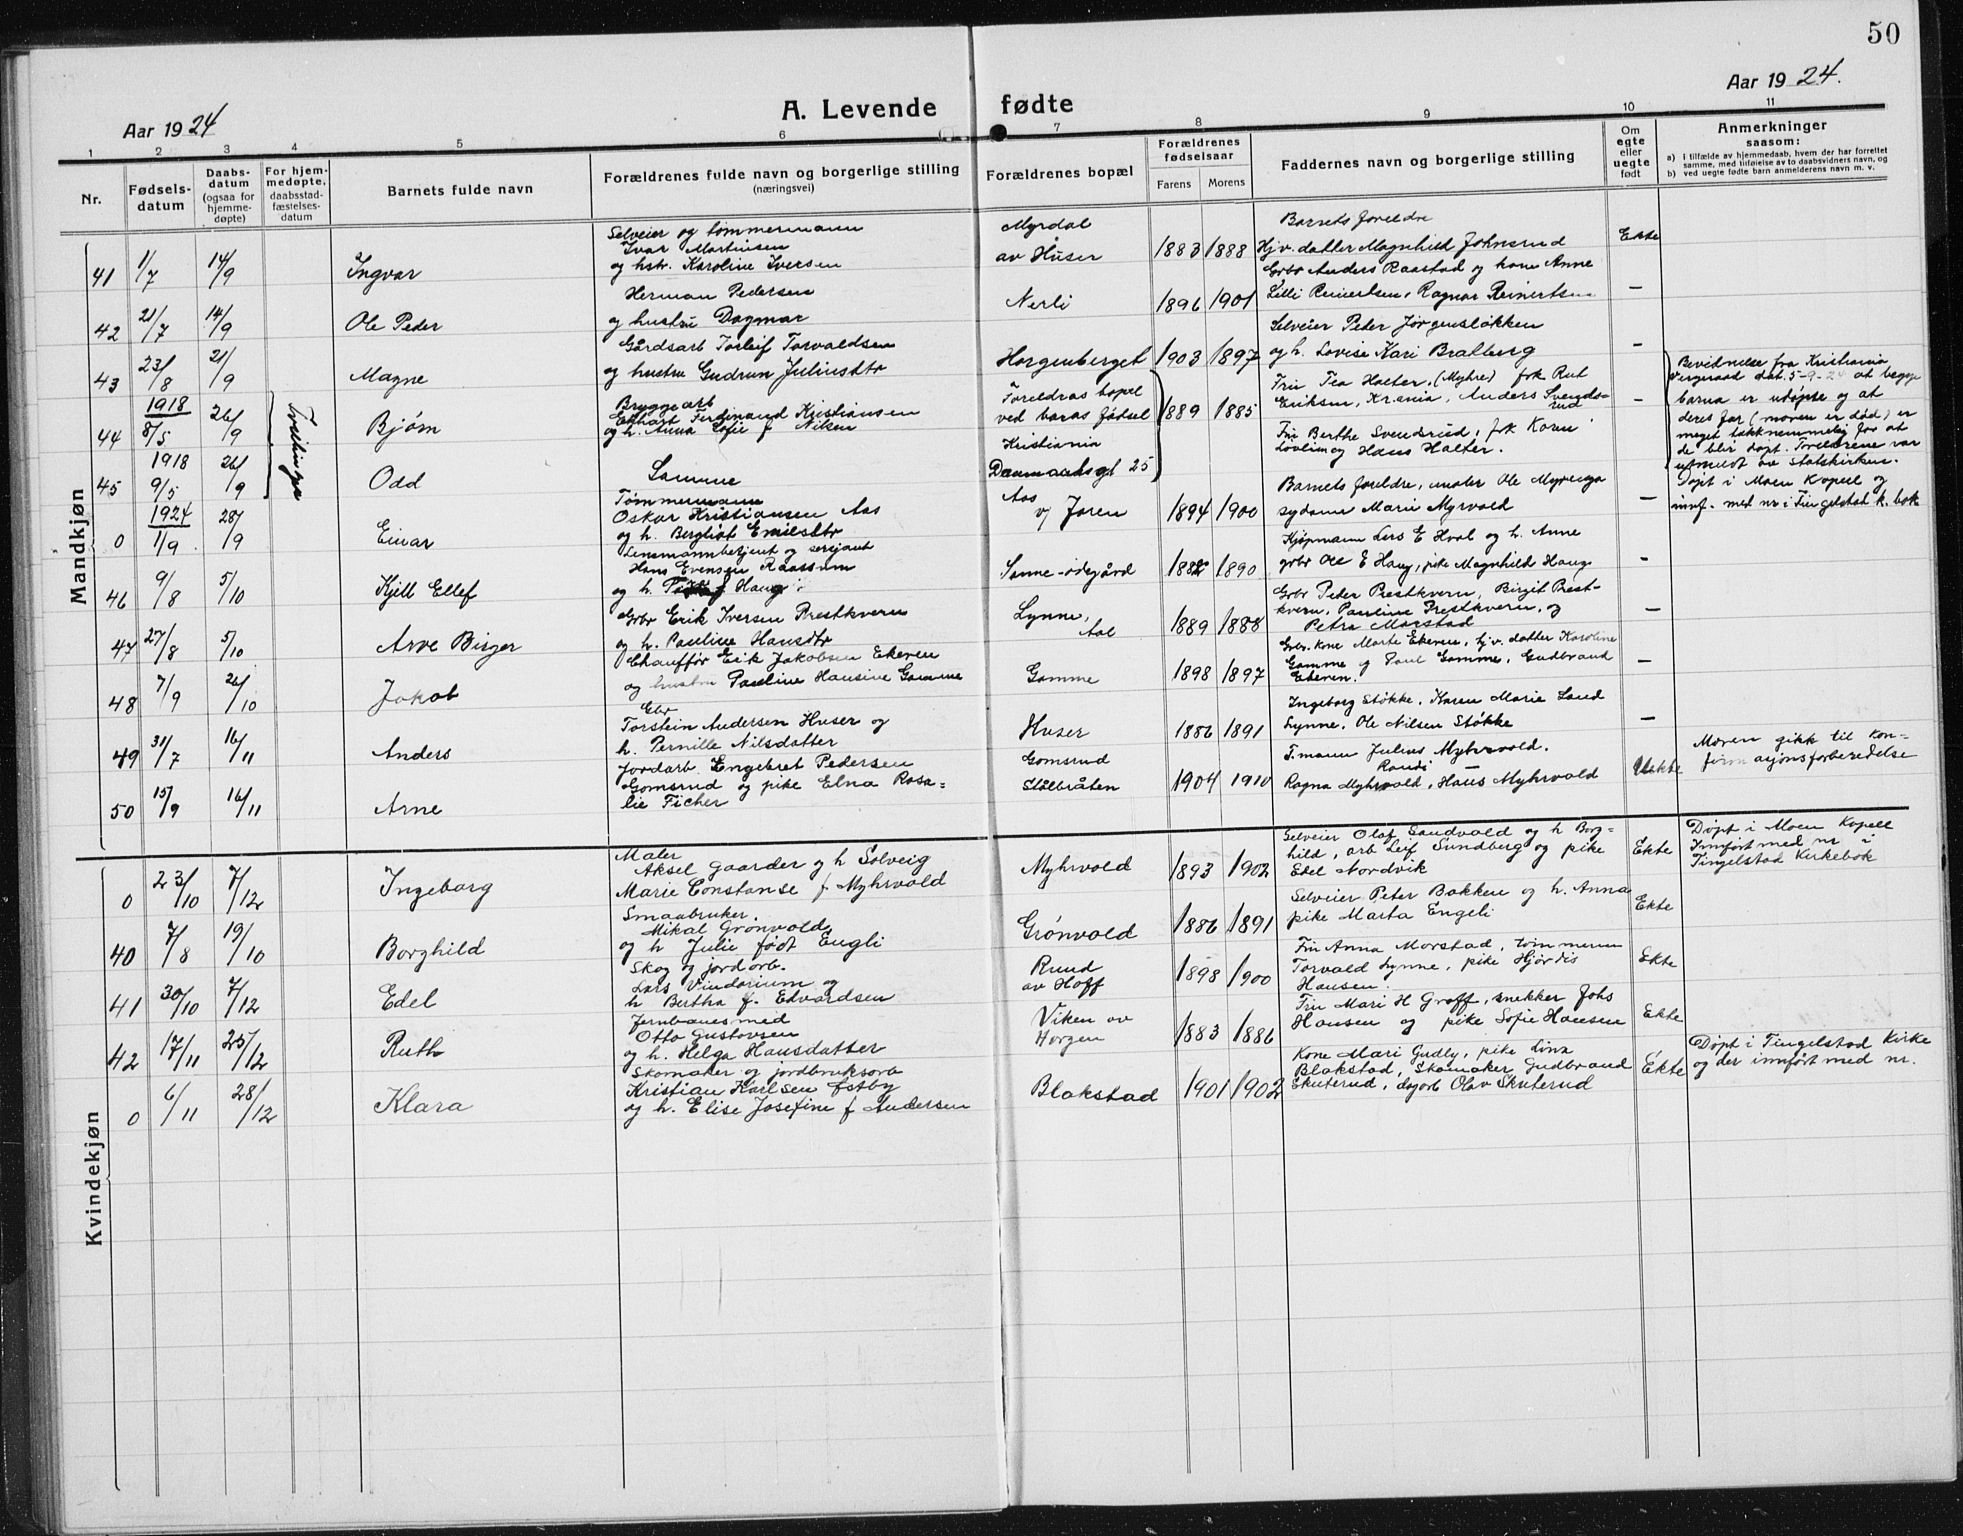 50
Aar 1924
A. Levende fødte
Aar 1924.
1 2 3 4 5 6 7 8 9 10 11
Nr.
Fødsels-
datum
Daabs-
datum
(ogsaa for
hjemme-
døpte)
For hjem-
medøpte,
daabsstad-
fæstelses-
datum
Barnets fulde navn
Forældrenes fulde navn og borgerlige stilling
(næringsvei)
Forældrenes bopæl
Forældrenes
fødselsaar
Farens Morens
Faddernes navn og borgerlige stilling
Om
egte
eller
uegte
født
Anmerkninger
saasom:
a) i tilfælde av hjemmedaab, hvem der har forrettet
samme, med tilføielse av to daabsvidners navn, og
b) ved uegte fødte barn anmelderens navn m. v.
Mandkjøn
41 1/7 14/9 Ingvar
Selveier og tømmermann
Ivar Martinsen
og hstr. Karoline Iversen
Myrdal
av Huser
1883 1888
Barnets foreldre
Hjv. datter Magnhild Johnsrud
Grbr Anders Raastad og kone Anne
Ekte
42 21/7 14/9 Ole Peder
Herman Pedersen
og hustru Dagmar
Nerli
1896 1901
Lilli Reinertsen, Ragnar Reinertsen
—
43 23/8 21/9 Magne
Gårdsarb Torleif Torvaldsen
og hustru Gudrun Juliusdtr
Horgenberget
1903 1897
Selveier Peder Jørgensløkken
og h. Lovise Kari Bratberg
—
44 1918 8/5 26/9 Bjørn
Tvillinger
Bryggearb
Ekhart Ferdinand Kristiansen
og h. Anna Sofie f Nilsen
Foreldres bopel
ved barns fødsel
Kristiania
Danmarksgt 25
1889 1885
Fru Tea Halter, (Myhre) frk Rut
Eriksen, Kr.ania, Anders Svends-
rud
Fru Berthe Svendsrud, frk Karen
Lovlim og Hans Halter.
—
Bevidnelse fra Kristiania
Vergeraad dat. 5-9-24 at begge
barna er udøpte og at
deres far (moren er død) er
meget takknemmelig for at
de blir døpt. Forældrene var
utmeldt av Statskirken.
45 1918 9/5 26/9 Odd
Samme
0 1924 1/9 28/9 Einar
Tømmermann
Oskar Kristiansen Aas
og h. Bergliot Emilsdtr
Aas
v/ Jaren
1894 1900
Barnets foreldre, maler Ole Myrenga
sydame Marie Myrvold
—
Døpt i Moen Kapell og
innf. med nr i Tingelstad k. bok
46 9/8 5/10 Kjell Ellef
Lensmannbetjent og sersjant
Hans Evensen Raassum
og h. f Haug
Sanne-ødegård
1882 1890
Kjøpmann Lars E Hval og h. Anne
grbr Ole E Haug, pike Magnhild Haug
—
47 27/8 5/10 Arve Birger
Grbr Erik Iversen Prestkvern
og h. Pauline Hansdtr
Lynne,
Aal
1889 1888
Grbr Peter Prestkvern, Birgit Prest-
kvern, Pauline Prestkvern, og
Petra Morstad
—
48 7/9 26/10 Jakob
Chauffør Erik Jakobsen Ekeren
og hustru Pauline Hansine Gamme
Gamme
1898 1897
Grbr. kone Marte Ekeren, hjv. datter Karoline
Gamme og Paul Gamme, Gudbrand
Ekeren.
—
49 31/7 16/11 Anders
Gbr
Torstein Andersen Huser og
h. Pernille Nilsdatter
Huser
1886 1891
Ingeborg Støkke, Karen Marie Land
Lynne, Ole Nilsen Støkke
—
50 15/9 16/11 Arne
Jordarb. Engebret Pedersen
Gomsrud og pike Elna Rosa-
lie Ficher
Gomsrud
Stålbråten
1904 1910
T.mann Julius Myhrvold.
Randi —
Ragna Myhrvold, Hans Myhrvold
Uekte
Moren gikk til kon-
firmasjonsforberedelse
Kvindekjøn
0 23/10 7/12 Ingeborg
Maler
Aksel Gaarder og h Solveig
Marie Constanse f Myhrvold
Myhrvold
1893 1902
Selveier Olaf Sandvold og h Borg-
hild, arb Leif Sundberg og pike
Edel Nordvik
Ekte
Døpt i Moen Kapell
Innført med nr i
Tingelstad Kirkebok
40 7/8 19/10 Borghild
Smaabruker.
Mikal Grønvold,
og h Julie født Engli
Grønvold
1886 1891
Selveier Peter Bakken og h. Anna
pike Marta Engeli
Ekte
41 30/10 7/12 Edel
Skog og jordarb.
Lars Vindorium og
h Bertha f. Edvardsen
Ruud
av Hoff
1898 1900
Fru Anna Morstad, tømmermann
Torvald Lynne, pike Hjørdis
Hansen.
Ekte
42 17/11 25/12 Ruth
Jernbanesmed
Otto Gustavsen
og h. Helga Hansdatter
Viken av
Horgen
1883 1886
Fru Mari H Graff, snekker Johs
Hansen og pike Sofie Hansen
Ekte
0 6/11 28/12 Klara
Skomaker og jordbruksarb
Kristian Karlsen Østby
og h. Elise Josefine f Andersen
Blakstad
1901 1902
Kone Mari Gudly, pike Lina
Blakstad, Skomaker Gudbrand
Skuterud, dagarb Olav Skuterud
Ekte
Døpt i Tingelstad Kirke
og der innført med nr.